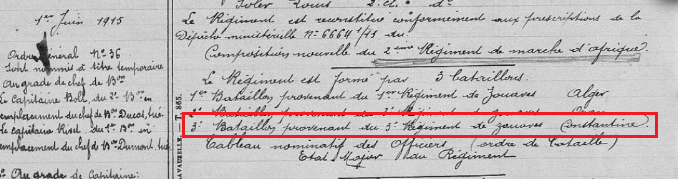 1er Juin 1915
Ordre Général N° 36
Sont nommés à titre temporaire
Au grade de chef de Bon
Le Capitaine Boll. du 2e Bon en
emplacement du chef de Bon Ducat, tué
Le capitaine du 1er Bon en
emplacement du chef de Bon Dumont, tué
Au grade de Capitaine:
LAVAUZELLE. — T. 865.
Louis 2e cl. do
Le Régiment est reconstitué conformément aux prescriptions de la
Dépêche ministérielle N° 6664 1/11 du
Composition nouvelle du 2ème Régiment de marche d'afrique.
Le Régiment est formé par 3 bataillons.
1er Bataillon provenant du 1er Régiment de Zouaves Alger
2e Bataillon provenant du Régiment de Zouaves Oran
3e Bataillon provenant du 3e Régiment de zouaves Constantine.
Tableau nominatif des Officiers (ordre de bataille)
Etat-Major du Régiment